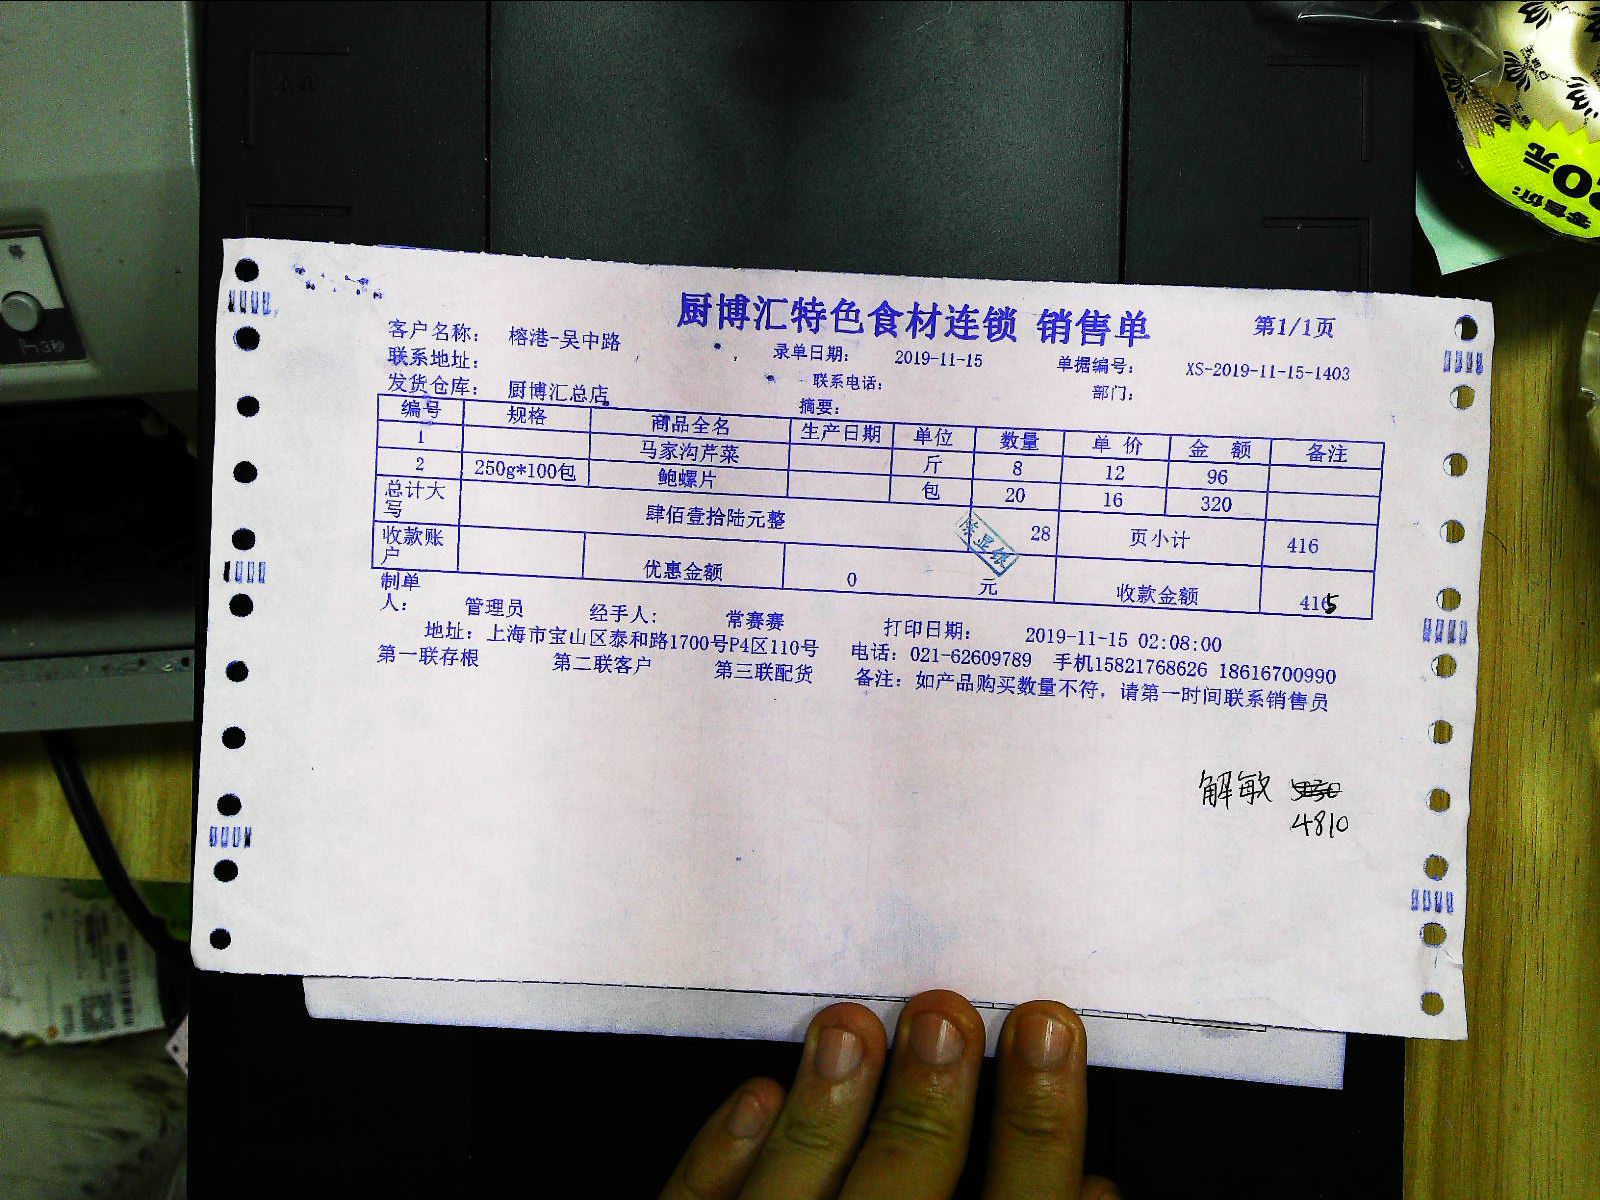 厨博汇特色食材连锁 销售单 第1/1页
客户名称： 榕港-吴中路 录单日期： 2019-11-15 单据编号： XS-2019-11-15-1403
联系地址： 联系电话： 部门：
发货仓库： 厨博汇总店 摘要：
编号 规格 商品全名 生产日期 单位 数量 单 价 金 额 备注
1 马家沟芹菜 斤 8 12 96
2 250g*100包 鲍螺片 包 20 16 320
总计大写 肆佰壹拾陆元整 28 页小计 416
陈显银
收款账户 优惠金额 0 元 收款金额 415
制单人： 管理员 经手人： 常赛赛 打印日期： 2019-11-15 02:08:00
地址：上海市宝山区泰和路1700号P4区110号 电话：021-62609789 手机15821768626 18616700990
第一联存根 第二联客户 第三联配货 备注：如产品购买数量不符，请第一时间联系销售员
解敏
4810
零售价：
0元